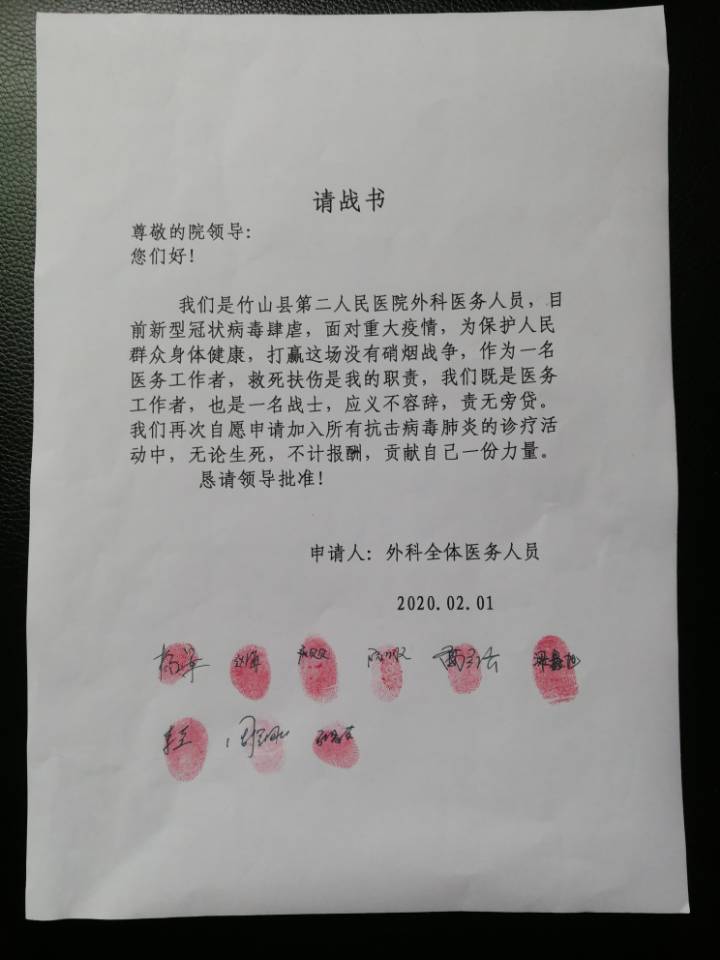 请战书
尊敬的院领导：
您们好！
我们是竹山县第二人民医院外科医务人员，目
前新型冠状病毒肆虐，面对重大疫情，为保护人民
群众身体健康，打赢这场没有硝烟战争，作为一名
医务工作者，救死扶伤是我的职责，我们既是医务
工作者，也是一名战士，应义不容辞，责无旁贷。
我们再次自愿申请加入所有抗击病毒肺炎的诊疗活
动中，无论生死，不计报酬，贡献自己一份力量。
恳请领导批准！
申请人：外科全体医务人员
2020.02.01